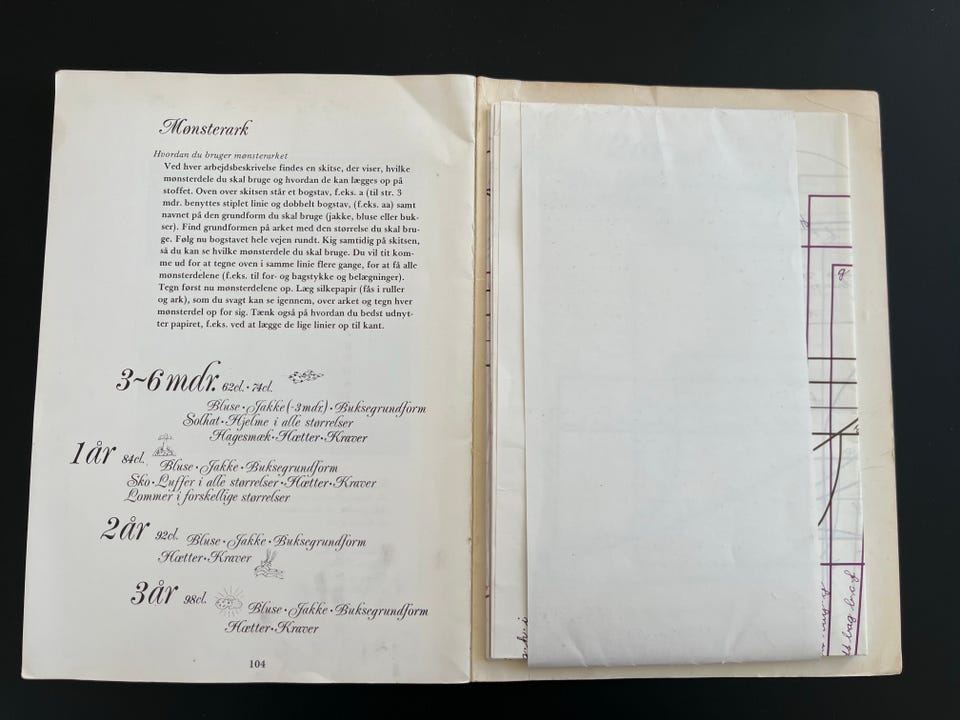 Mønsterark
Hvordan du bruger mønsterarket
Ved hver arbejdsbeskrivelse findes en skitse, der viser, hvilke
mønsterdele du skal bruge og hvordan de kan lægges op på
stoffet. Oven over skitsen står et bogstav, f.eks. a (til str. 3
mdr. benyttes stiplet linie og dobbelt bogstav, (f.eks. aa) samt
navnet på den grundform du skal bruge (jakke, bluse eller buk-
ser). Find grundformen på arket med den størrelse du skal bru-
ge. Følg nu bogstavet hele vejen rundt. Kig samtidig på skitsen,
så du kan se hvilke mønsterdele du skal bruge. Du vil tit kom-
me ud for at tegne oven i samme linie flere gange, for at få alle
mønsterdelene (f.eks. til for- og bagstykke og belægninger).
Tegn først nu mønsterdelene op. Læg silkepapir (fås i ruller
og ark), som du svagt kan se igennem, over arket og tegn hver
mønsterdel op for sig. Tænk også på hvordan du bedst udnyt-
ter papiret, f.eks. ved at lægge de lige linier op til kant.
3~6 mdr. 62cl. · 74cl.
Bluse · Jakke (-3mdr.) · Buksegrundform
Solhat · Hjelme i alle størrelser
Hagesmæk · Hætter · Kraver
1 år 84cl.
Bluse · Jakke · Buksegrundform
Sko · Luffer i alle størrelser · Hætter · Kraver
Lommer i forskellige størrelser
2 år 92cl. Bluse · Jakke · Buksegrundform
Hætter · Kraver
3 år 98cl.
Bluse · Jakke · Buksegrundform
Hætter · Kraver
104
g